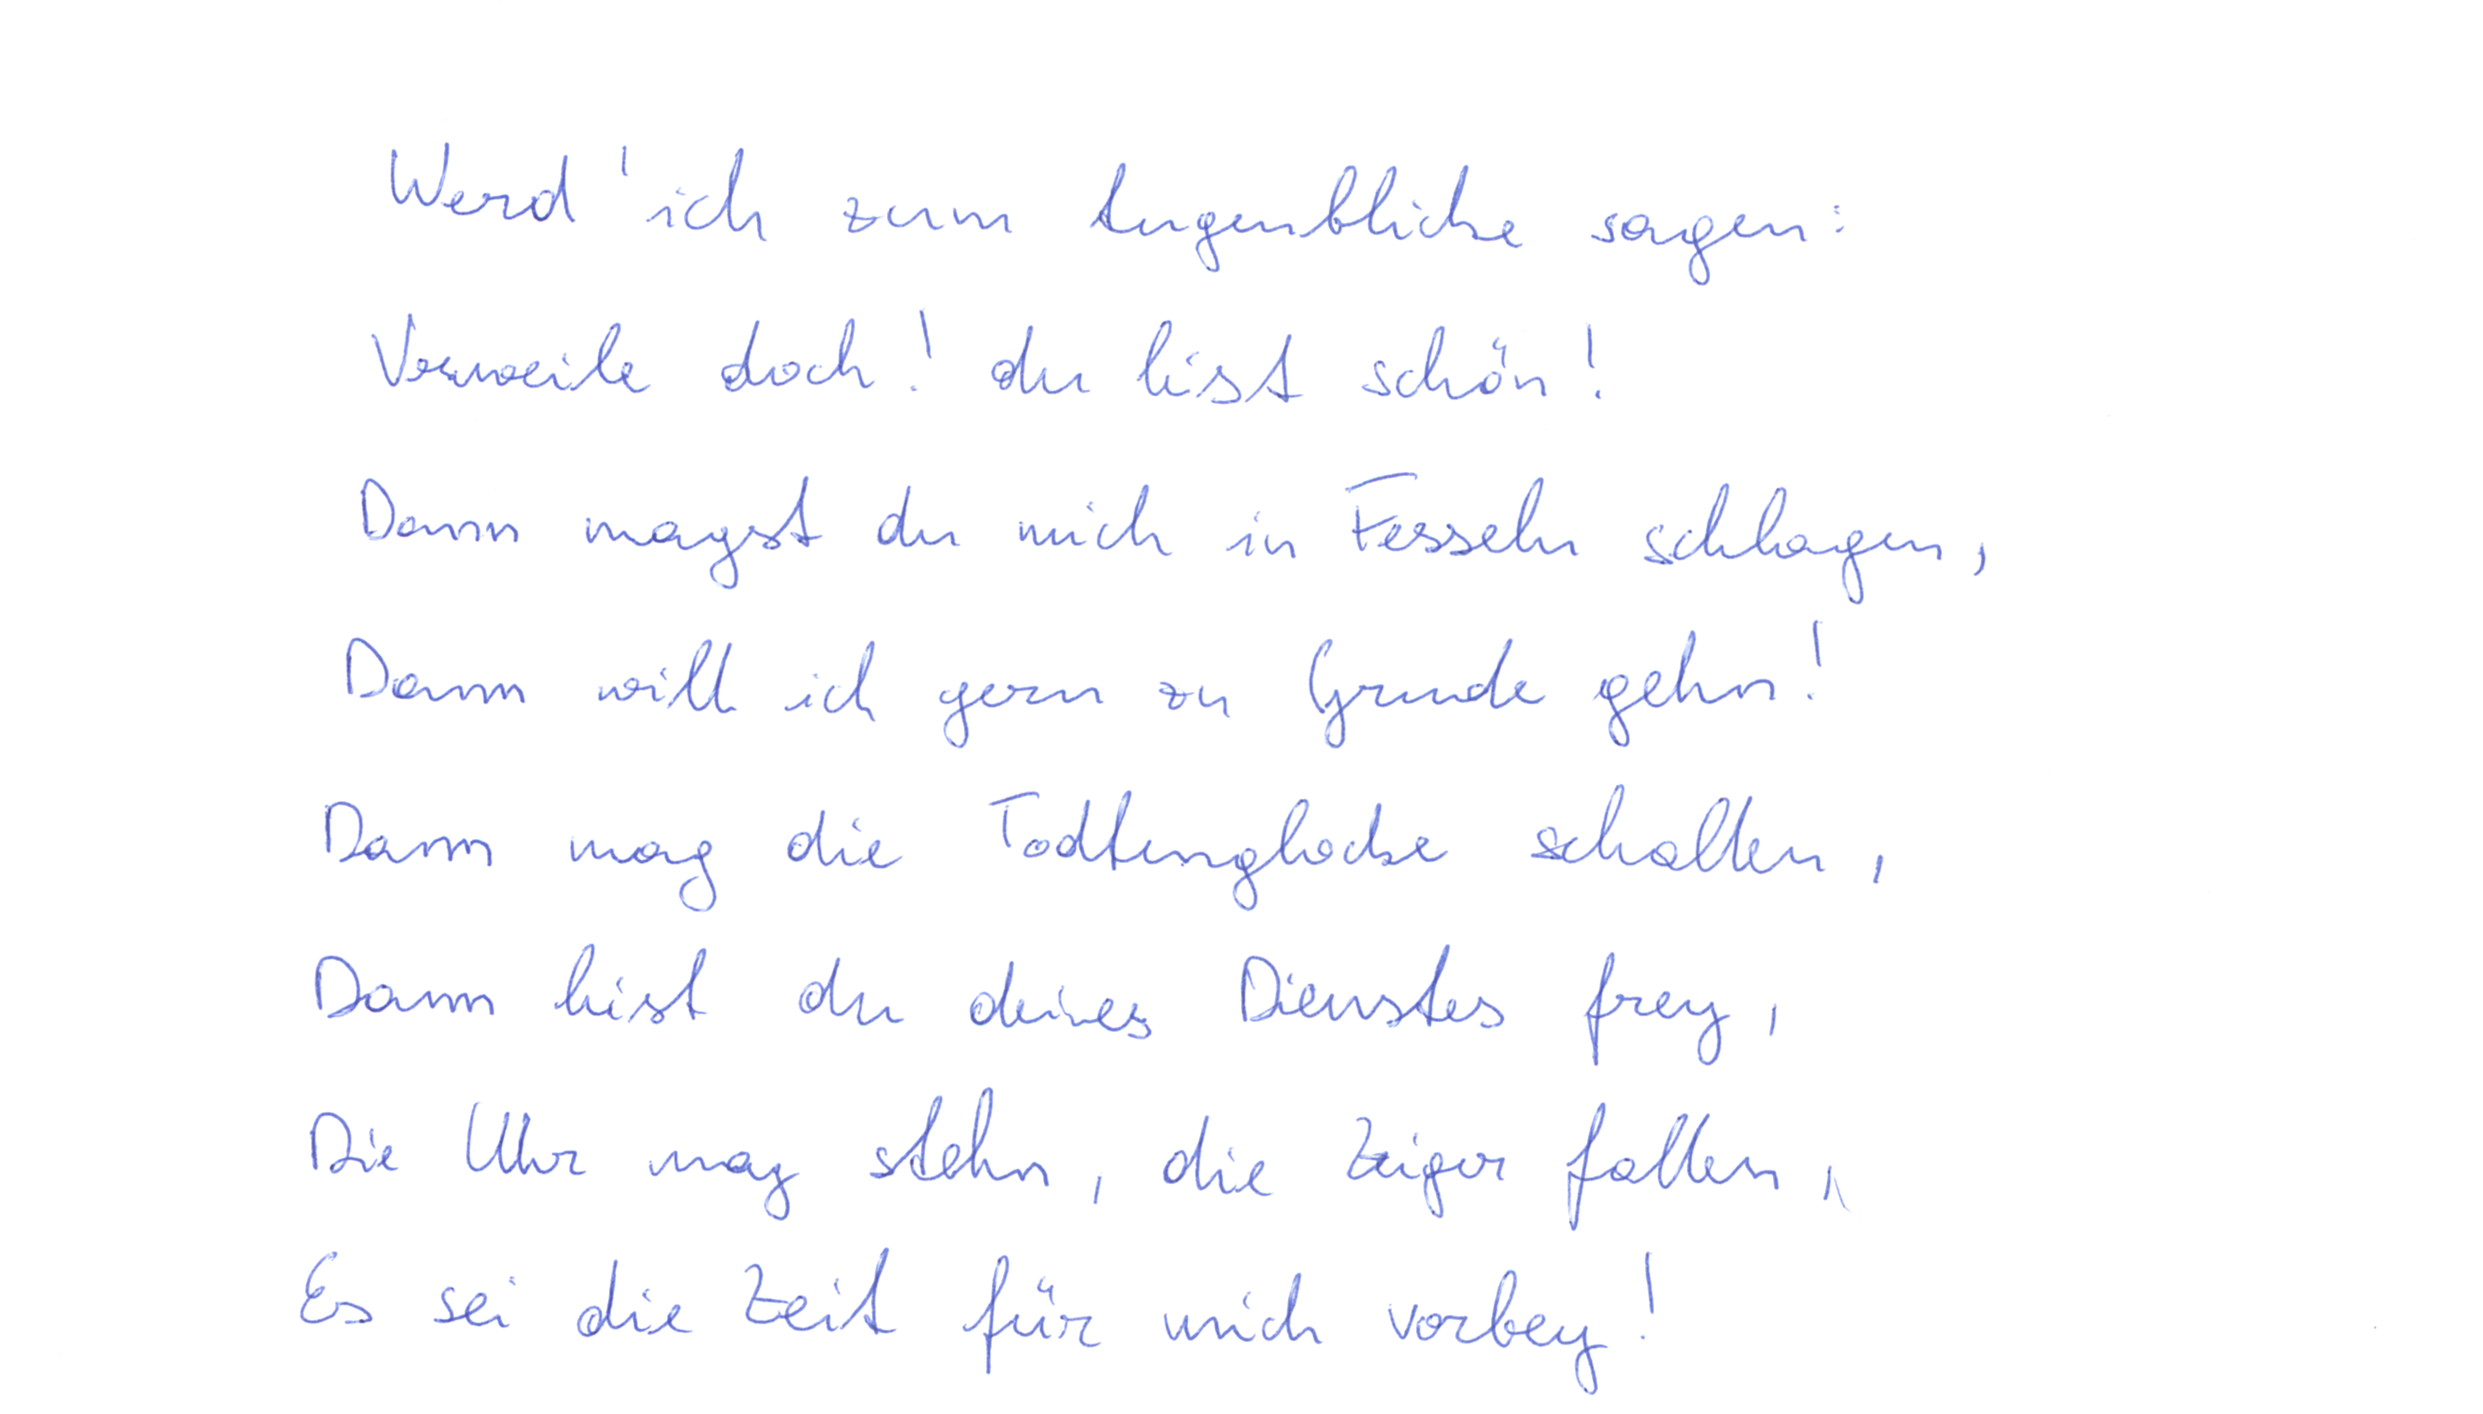 Werd' ich zum Augenblicke sagen:
Verweile doch! du bist schön!
Dann magst du mich in Fesseln schlagen,
Dann will ich gern zu Grunde gehn!
Dann mag die Todtenglocke schallen,
Dann bist du deines Dienstes frey,
Die Uhr mag stehn, die Zeiger fallen,
Es sei die Zeit für mich vorbey!